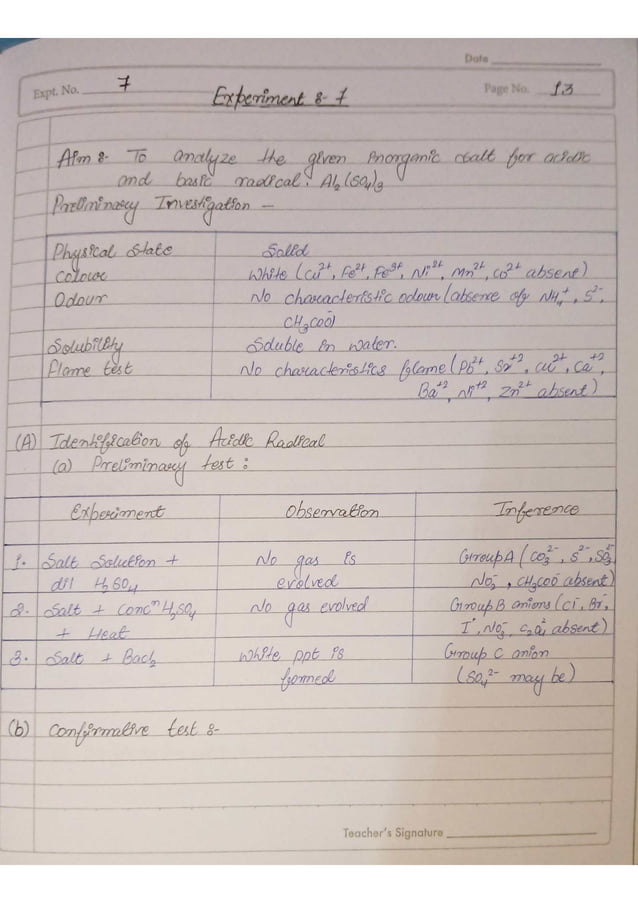 Date
Expt. No. 7
Page No. 13
Experiment :- 7
Aim :- To analyze the given inorganic salt for acidic
and basic radical. Al₂(SO₄)₃
Preliminary Investigation –
Physical State Solid
Colour White (Cu²⁺, Fe²⁺, Fe³⁺, Ni²⁺, Mn²⁺, Co²⁺ absent)
Odour No characteristic odour (absence of NH₄⁺, S²⁻,
CH₃COO⁻)
Solubility Soluble in water.
Flame test No characteristics flame (Pb²⁺, Sr⁺², Cu²⁺, Ca⁺²,
Ba⁺², Ni⁺², Zn²⁺ absent)
(A) Identification of Acidic Radical
(a) Preliminary test :
Experiment Observation Inference
1. Salt Solution + No gas is Group A (CO₃²⁻, S²⁻, SO₃²⁻
dil H₂SO₄ evolved NO₂⁻, CH₃COO⁻ absent)
2. Salt + Concⁿ H₂SO₄ No gas evolved Group B anions (Cl⁻, Br⁻,
+ Heat I⁻, NO₃⁻, C₂O₄²⁻ absent)
3. Salt + BaCl₂ White ppt is Group C anion
formed (SO₄²⁻ may be)
(b) Confirmative test :-
Teacher's Signature